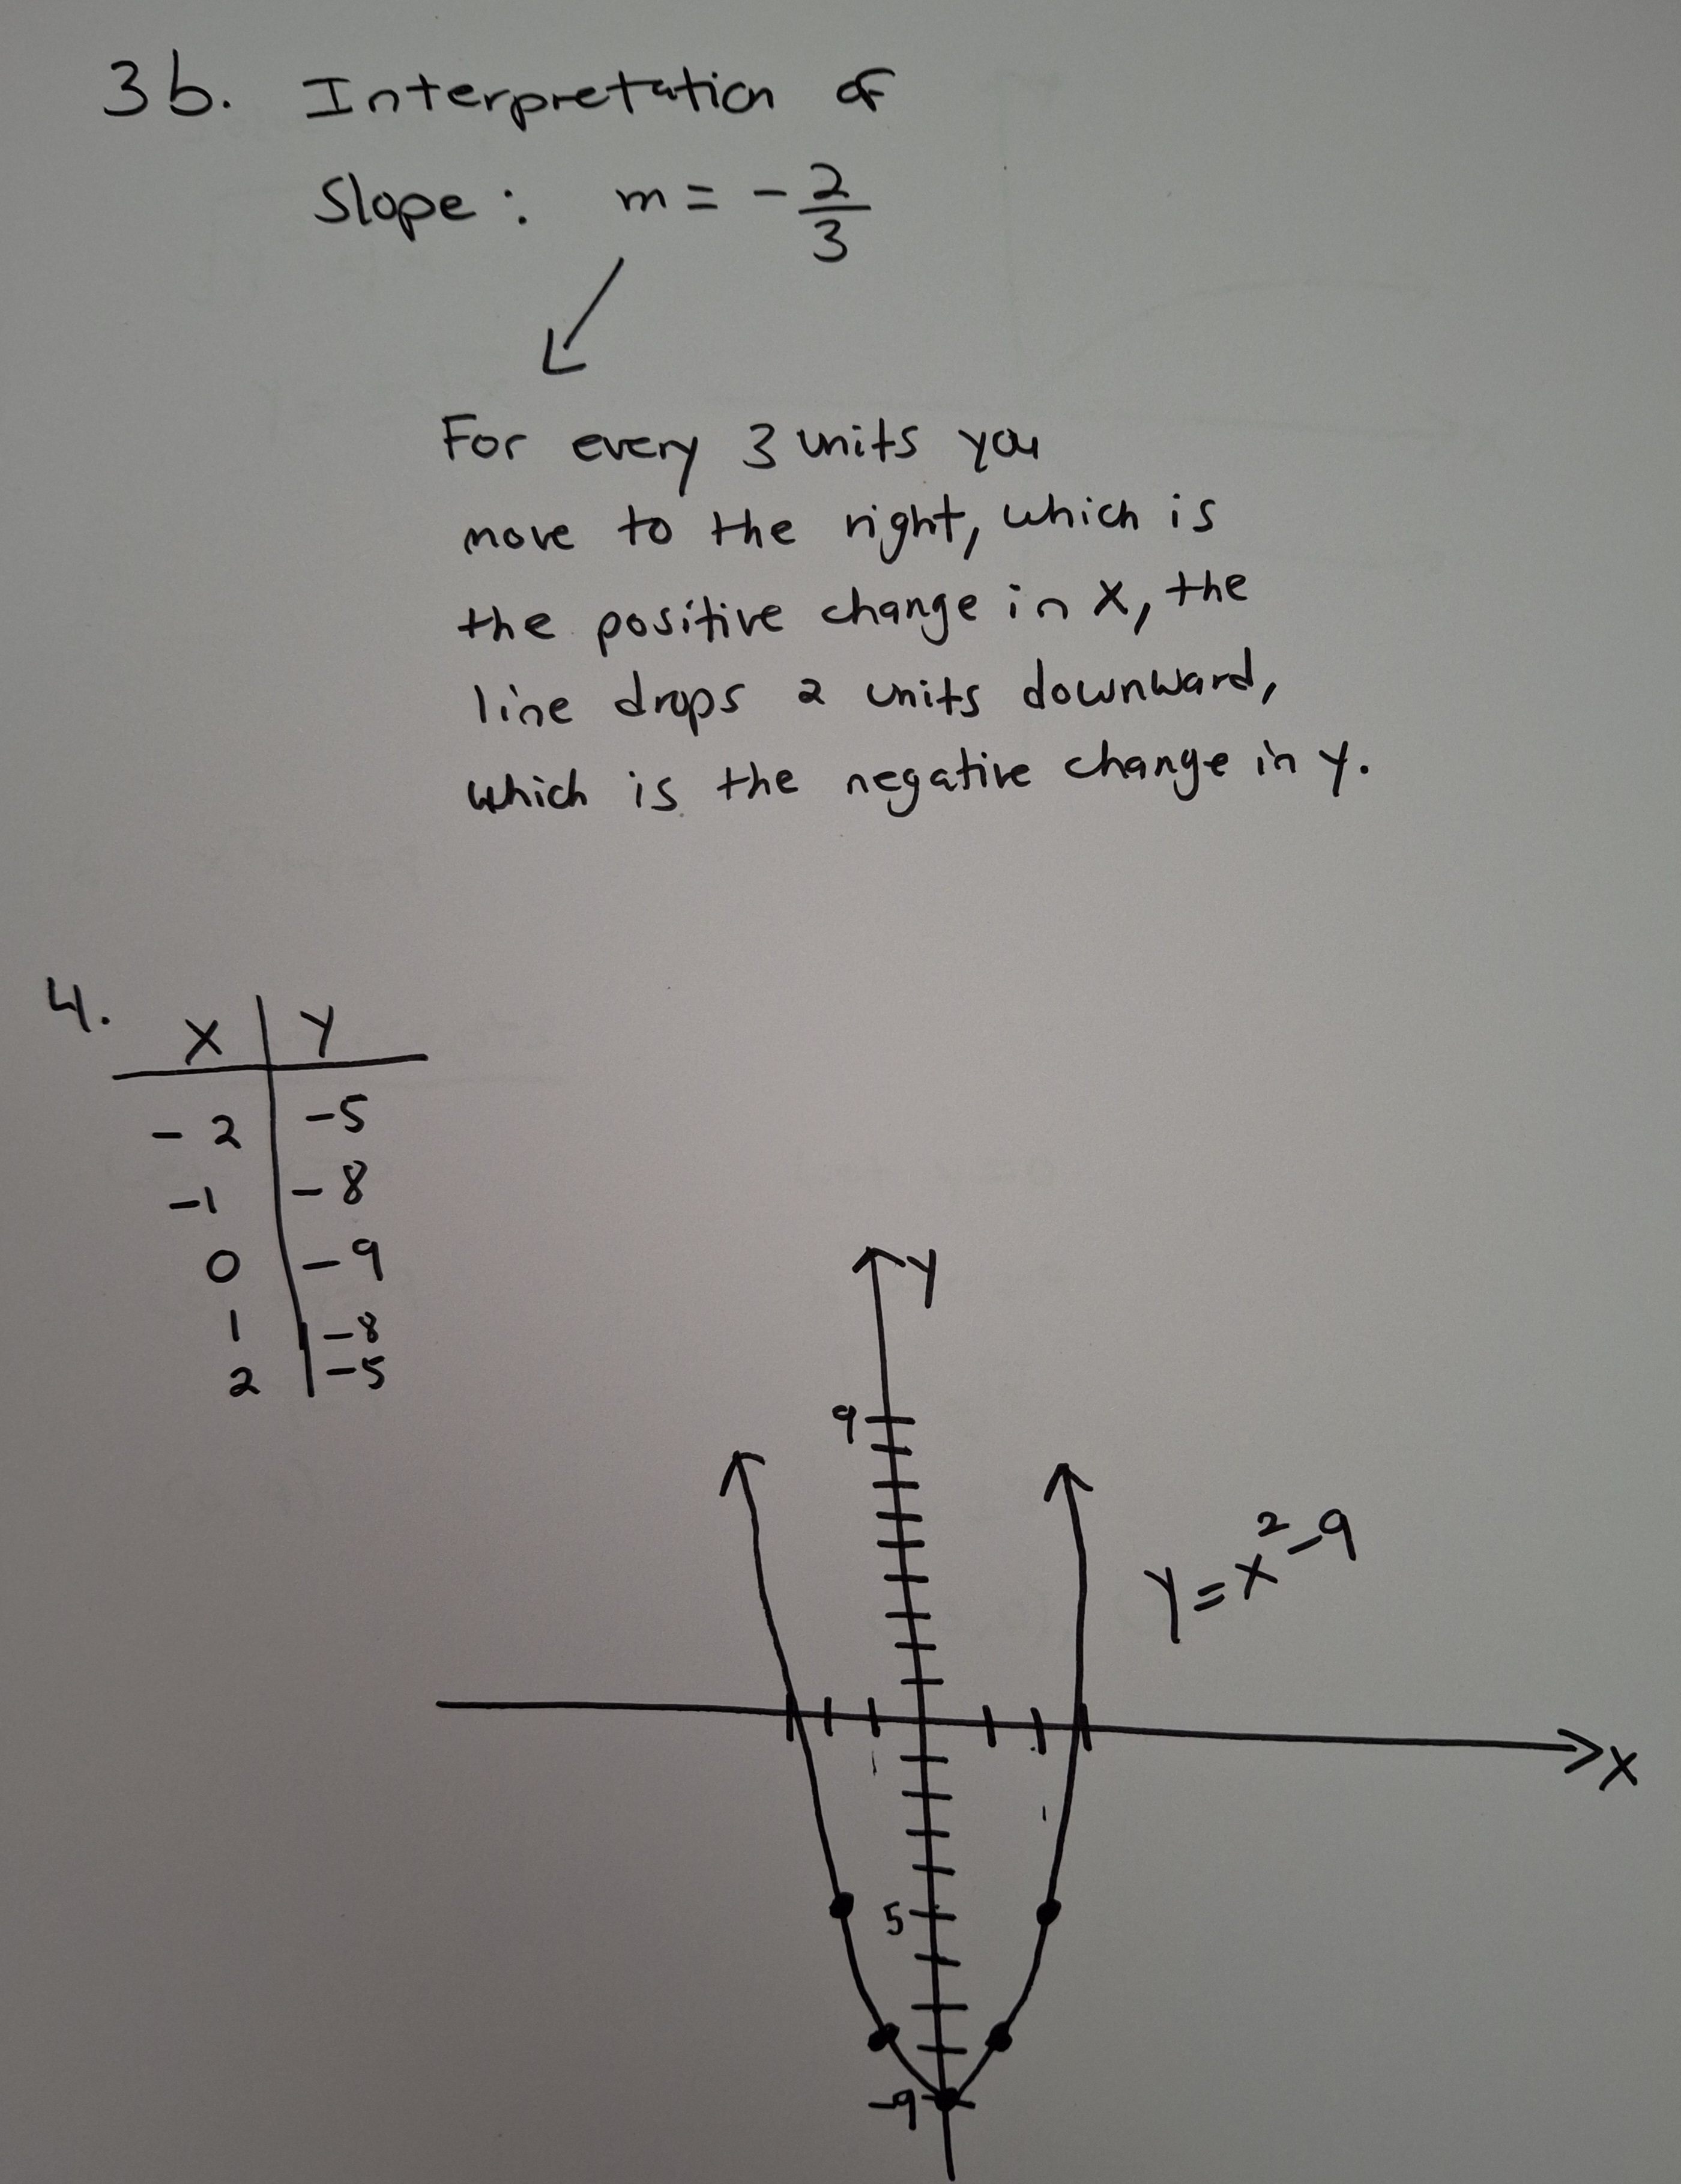 3b. Interpretation of
Slope: m = -2/3
For every 3 units you
move to the right, which is
the positive change in x, the
line drops 2 units downward,
which is the negative change in y.
4.
x | y
-2 | -5
-1 | -8
0 | -9
1 | -8
2 | -5
y
9
y = x² - 9
x
5
-9